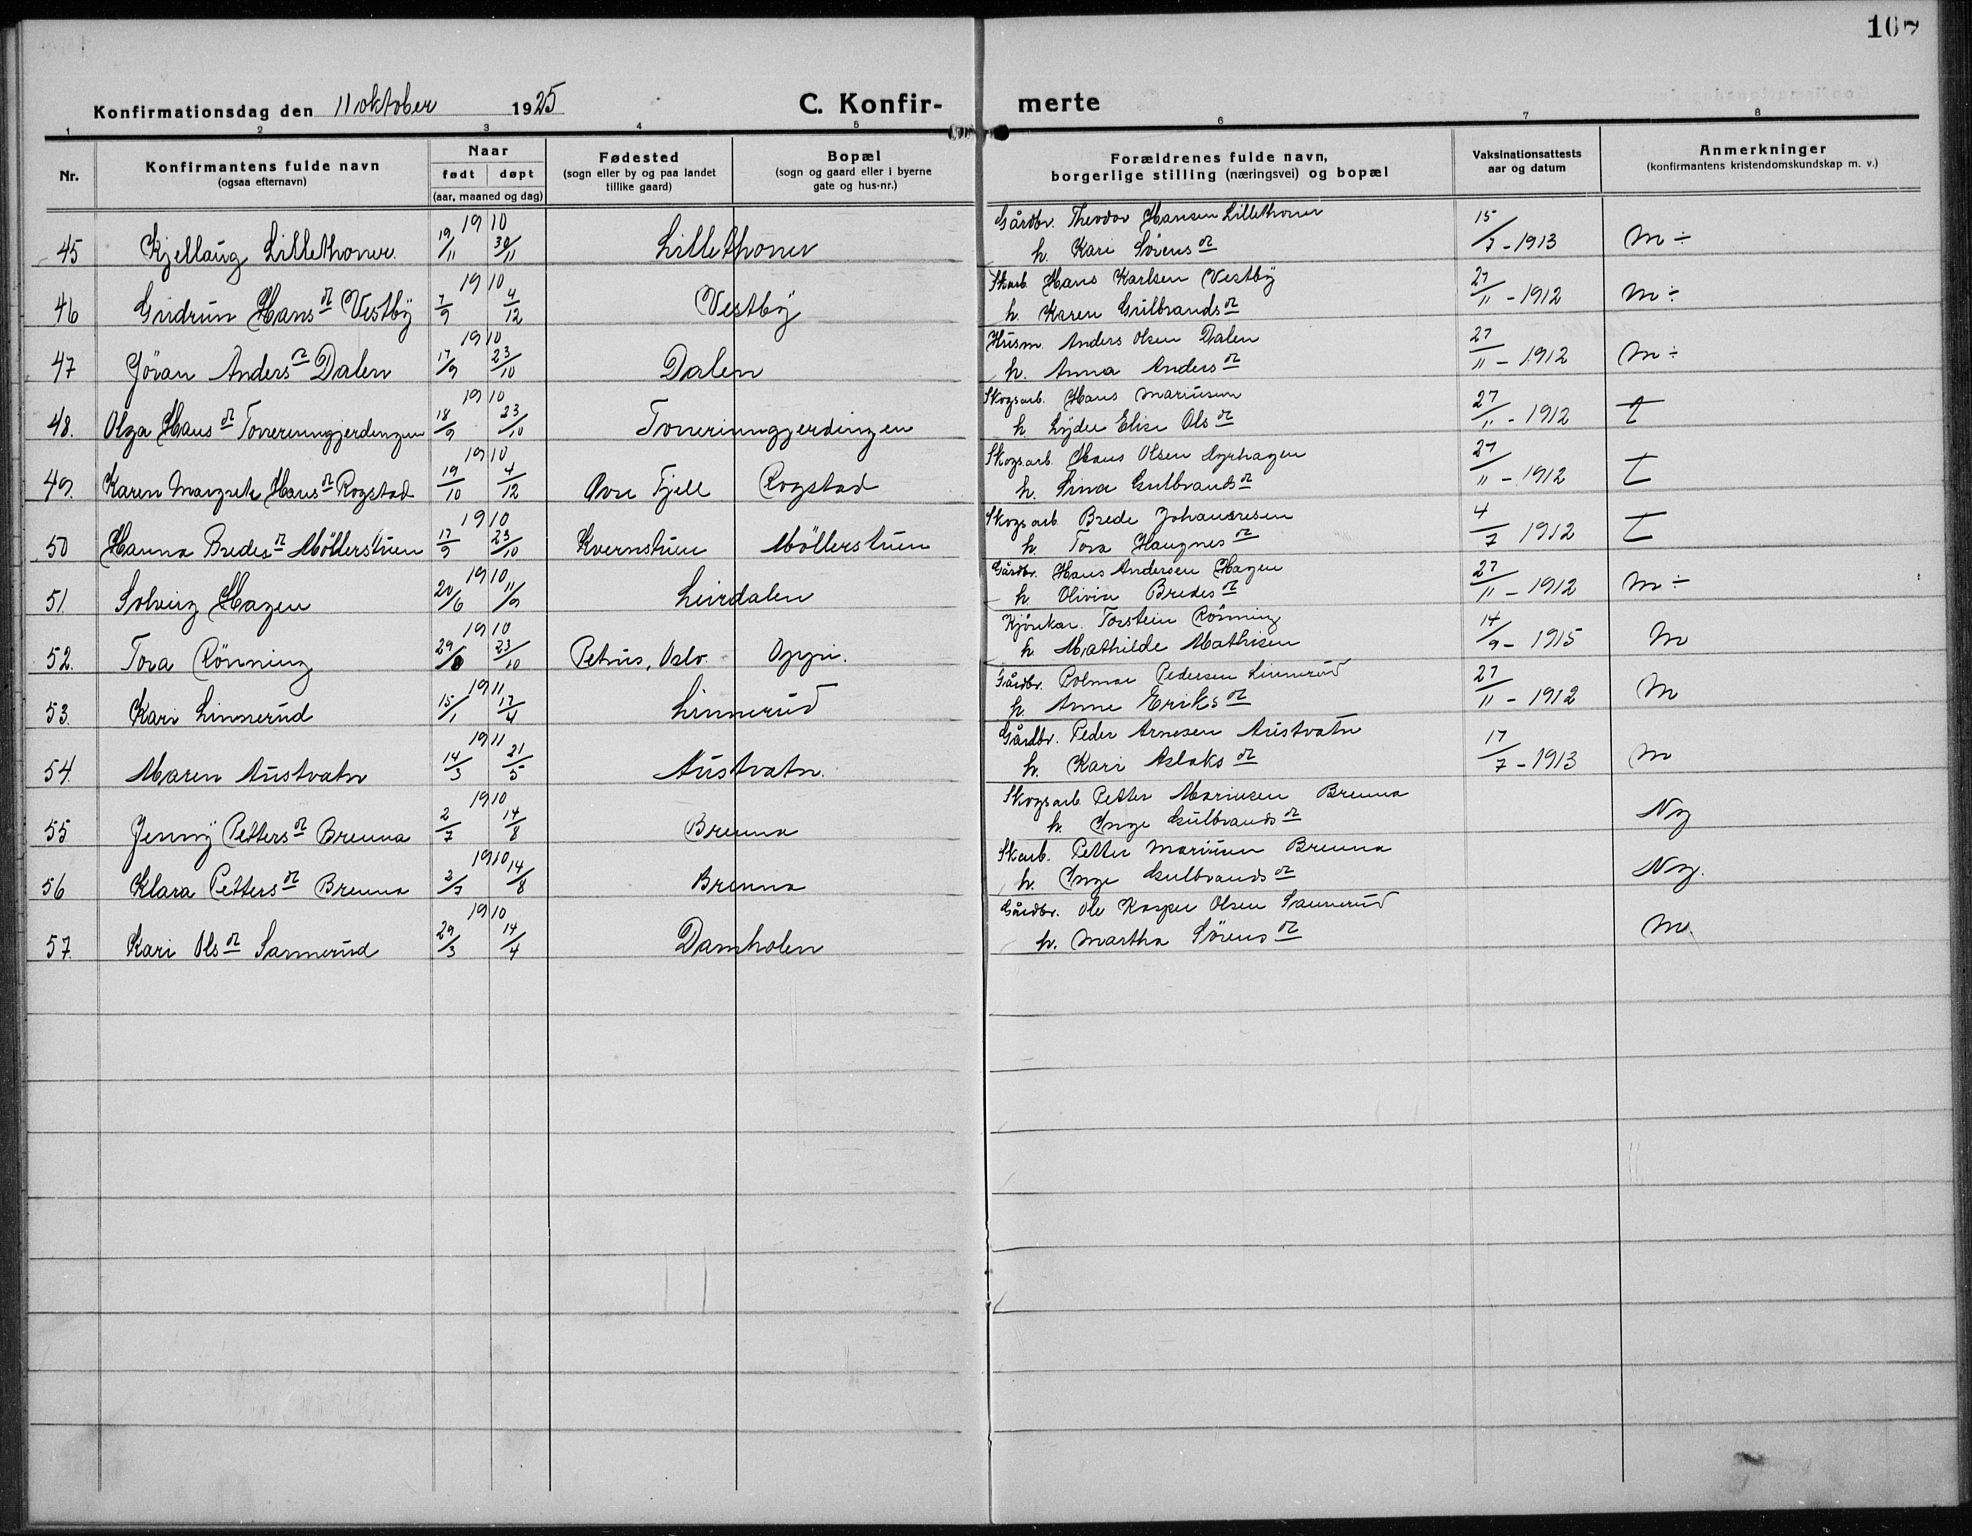 Konfirmationsdag den 11 oktober 1925
C. Konfir-
merte
1 2 3 4 5 6 7 8
Nr.
Konfirmantens fulde navn
(ogsaa efternavn)
Naar
født døpt
(aar, maaned og dag)
Fødested
(sogn eller by og paa landet
tillike gaard)
Bopæl
(sogn og gaard eller i byerne
gate og hus-nr.)
Forældrenes fulde navn,
borgerlige stilling (næringsvei) og bopæl
Vaksinationsattests
aar og datum
Anmerkninger
(konfirmantens kristendomskundskap m. v.)
1910
45 Kjellaug Lillethoner. 19/11 30/11 Lillethoner
Gårdbr. Theodor Hansen Lillethoner
h. Kari Sørens dt 15/7 - 1913 M ÷
1910
46 Gudrun Hans dt Vestby 7/9 4/12 Vestby
Skarb Hans Karlsen Vestby
h. Karen Gulbrands dt 27/11 - 1912 M ÷
1910
47 Jöran Anders dt Dalen 17/9 23/10 Dalen
Husm. Anders Olsen Dalen
h. Anna Anders dt 27/11 - 1912 M ÷
1910
48. Olga Hans dt 18/9 23/10
Skogsarb. Hans Mariusen
h Lydie Elise Ols dt 27/11 - 1912 t
1910
49. Karen Margrete Hans dt Rogstad 19/10 4/12 Øvre Fjell Rogstad
Skogsarb. Hans Olsen Myrhagen
h. Sina Gulbrands dt 27/11 - 1912 t
1910
50 Hanna Bredes dt Möllerstuen 17/9 23/10 Kvernstuen Möllerstuen
Skogsarb Brede Johannesen
h Tora Haugnes dt 4/7 1912 t
1910
51. Solveig Hagen 20/6 11/9 Leirdalen
Gårdbr. Hans Andersen Hagen
h. Olivia Bredes dt 27/11 - 1912 M ÷
1910
52. Tora Rönning 29/8 23/10 Petrus, Oslo. Oppi.
Torstein Rönning
h Mathilde Mathisen 14/9 - 1915 M
1911
53. Kari Linnerud 15/1 17/4 Linnerud
Gårdbr. Polmar Pedersen Linnerud
h. Anne Eriks dt 27/11 - 1912 M
1911
54. Maren Austvatn 14/3 21/5 Austvatn.
Gårdbr. Peder Arnesen Austvatn
h. Kari Aslaks dt 17/7 - 1913 M
1910
55 Jenny Petters dt Brenna 2/7 14/8 Brenna
Skogsarb Petter Mariusen Brenna
h. Inge Gulbrands dt Ng
1910
56 Klara Petters dt Brenna 2/7 14/8 Brenna
Skarb. Petter Mariusen Brenna
h. Inge Gulbrands dt Ng.
1910
57. Kari Ols dt Sannerud 29/3 14/4 Damholen
Gårdbr. Ole Kasper Olsen Sannerud
h. Martha Sørens dt M.